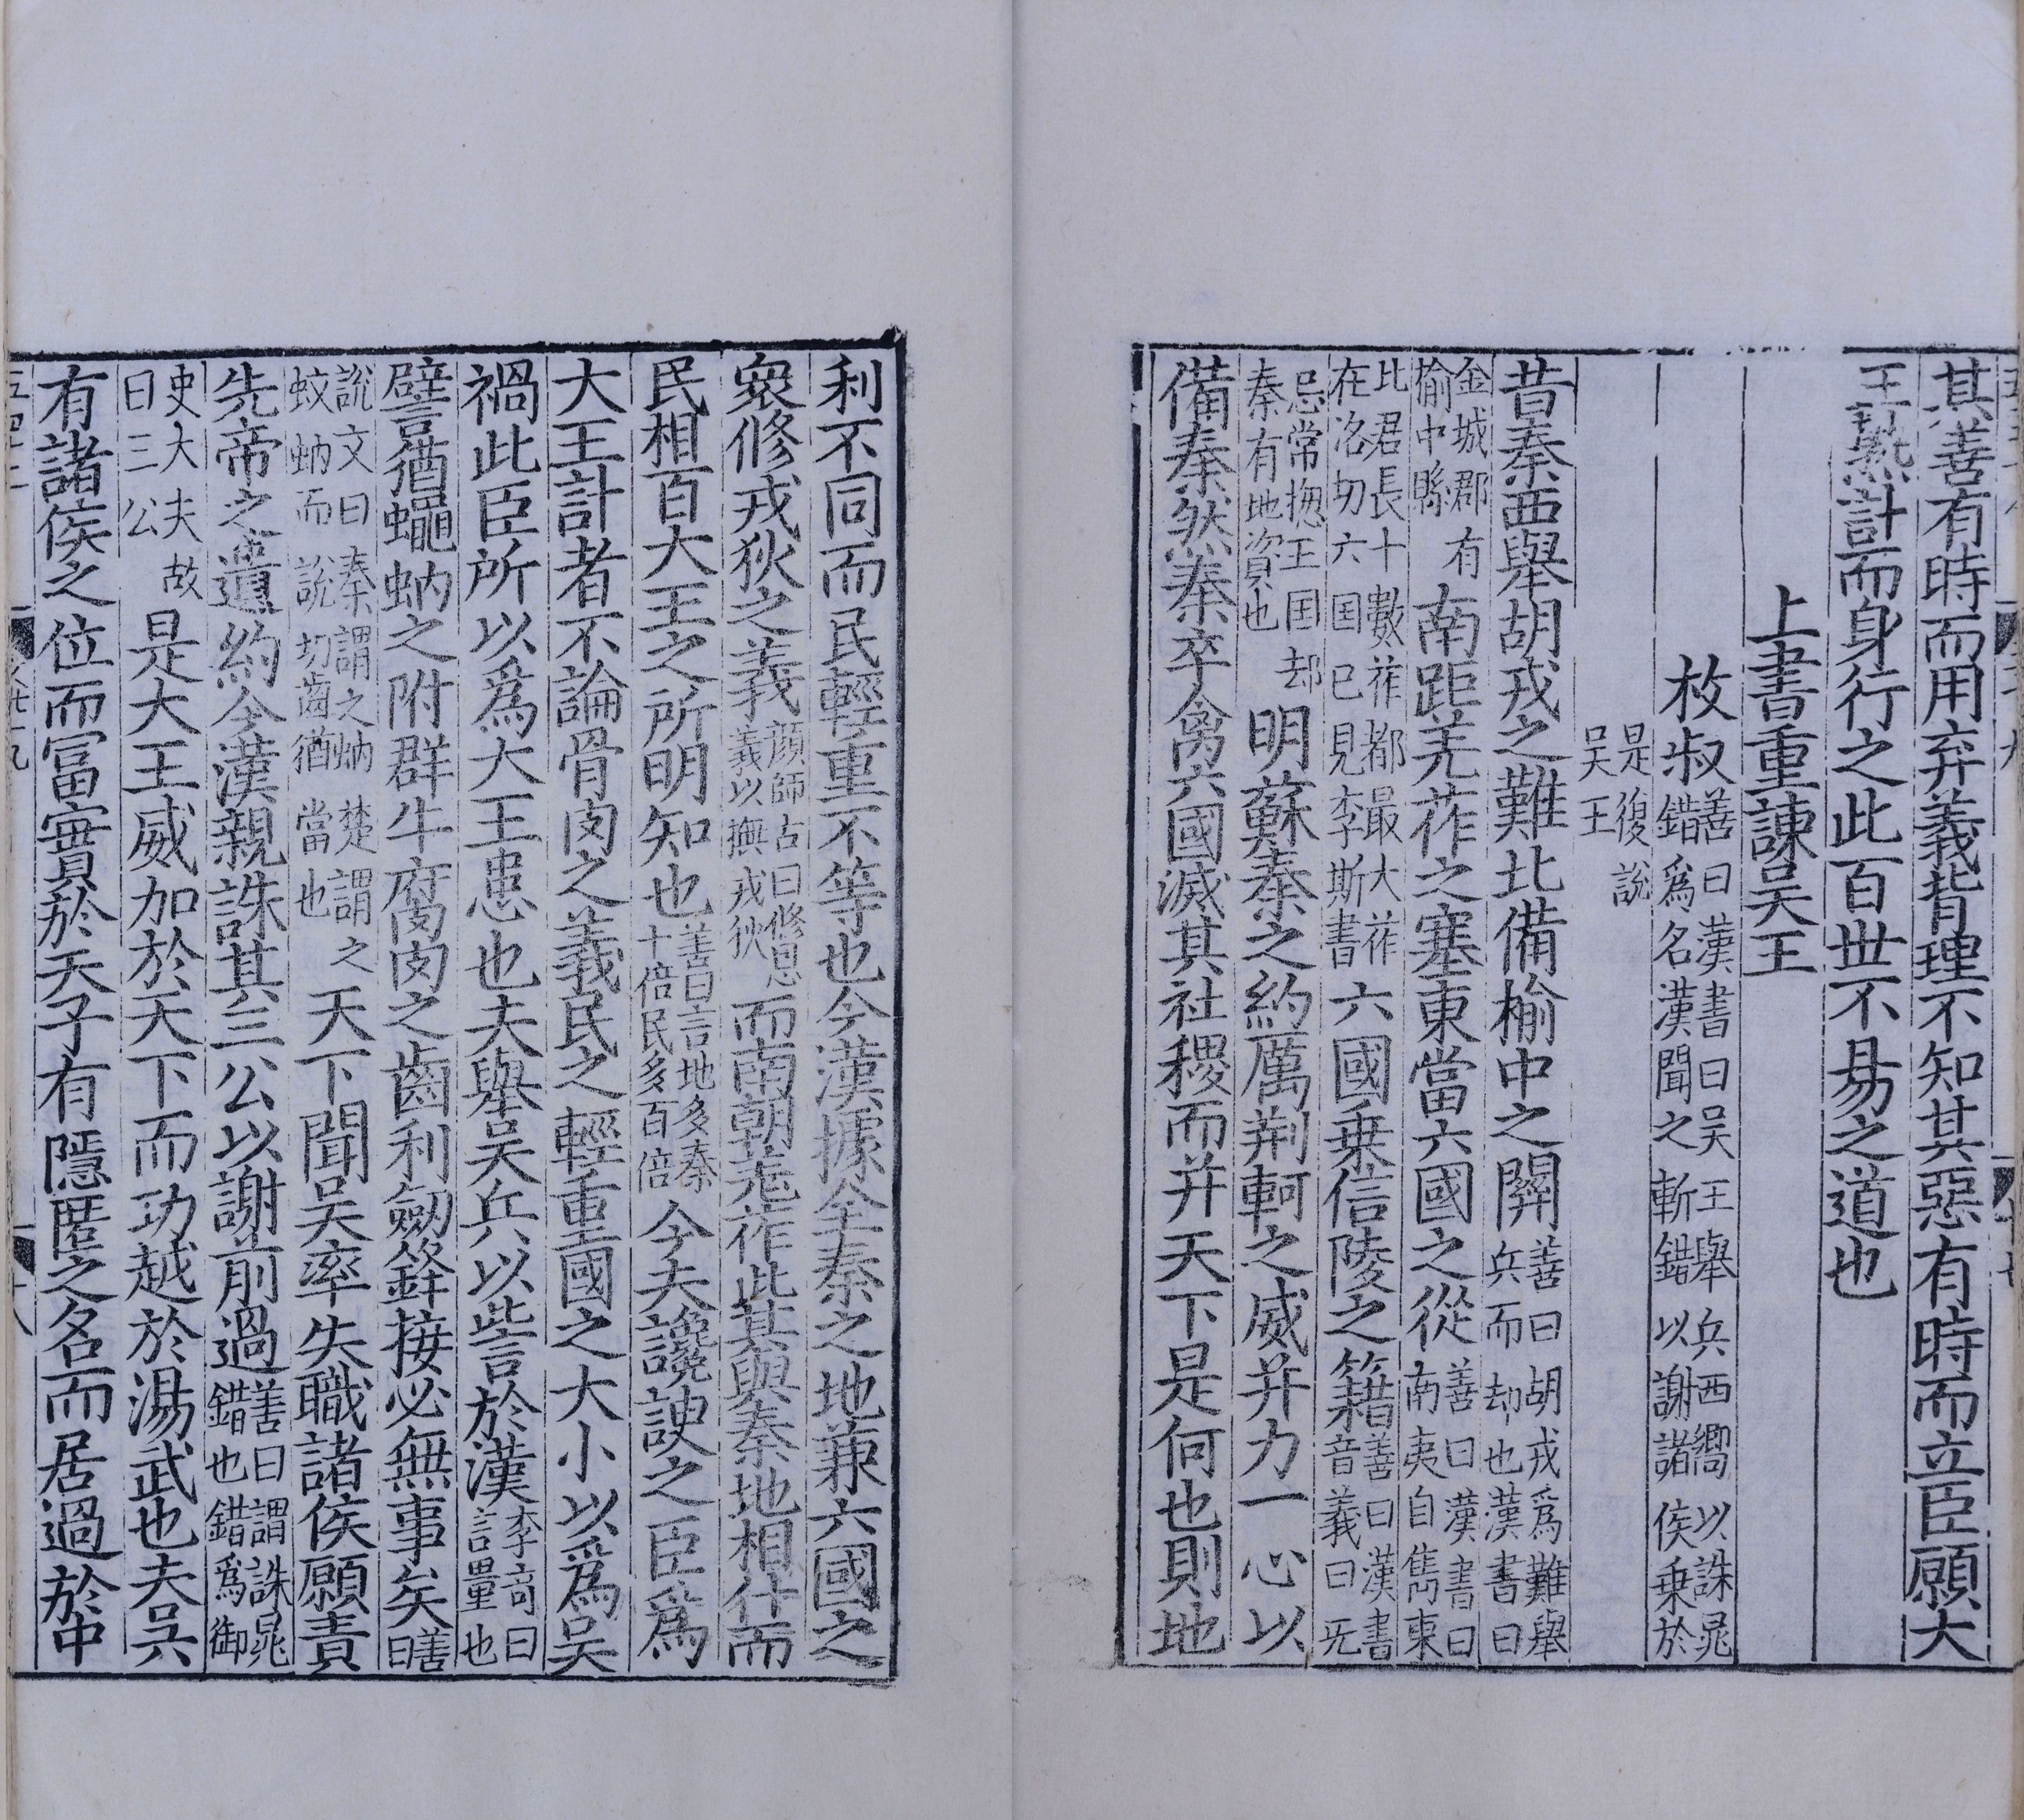 其善有時而用弃義背理不知其惡有時而立臣願大
王熟計而身行之此百世不易之道也
上書重諫吳王
枚叔善曰漢書曰吳王舉兵西嚮以誅晁錯爲名漢聞之斬錯以謝諸侯乗於
是復說吳王
昔秦西舉胡戎之難北備榆中之關善曰胡戎爲難舉兵而却也漢書曰
金城郡有榆中縣南距羌莋之塞東當六國之從善曰漢書曰南夷自雋東
比君長十數莋都最大莋在洛切六国已見李斯書六國乗信陵之籍善曰漢書音義曰旡
忌常揔王国却秦有地資也明蘇秦之約厲荆軻之威并力一心以
備秦然秦卒禽六國滅其社稷而并天下是何也則地
利不同而民輕重不等也今漢據全秦之地兼六國之
衆修戎狄之義顔師古曰修恩義以撫戎狄而南朝羌莋此其與秦地相什而
民相百大王之所明知也善曰言地多秦十倍民多百倍今夫讒諛之臣爲
大王計者不論骨肉之義民之輕重國之大小以爲吳
禍此臣所以爲大王患也夫舉吳兵以訾於漢李奇曰訾量也
譬猶蠅蚋之附群牛腐肉之齒利劒鋒接必無事矣善曰
說文曰秦謂之蚋楚謂之蚊蚋而說切齒猶當也天下聞吳率失職諸侯願責
先帝之遺約今漢親誅其三公以謝前過善曰謂誅晁錯也錯爲御
史大夫故曰三公是大王威加於天下而功越於湯武也夫吳
有諸侯之位而富實於天子有隱匿之名而居過於中